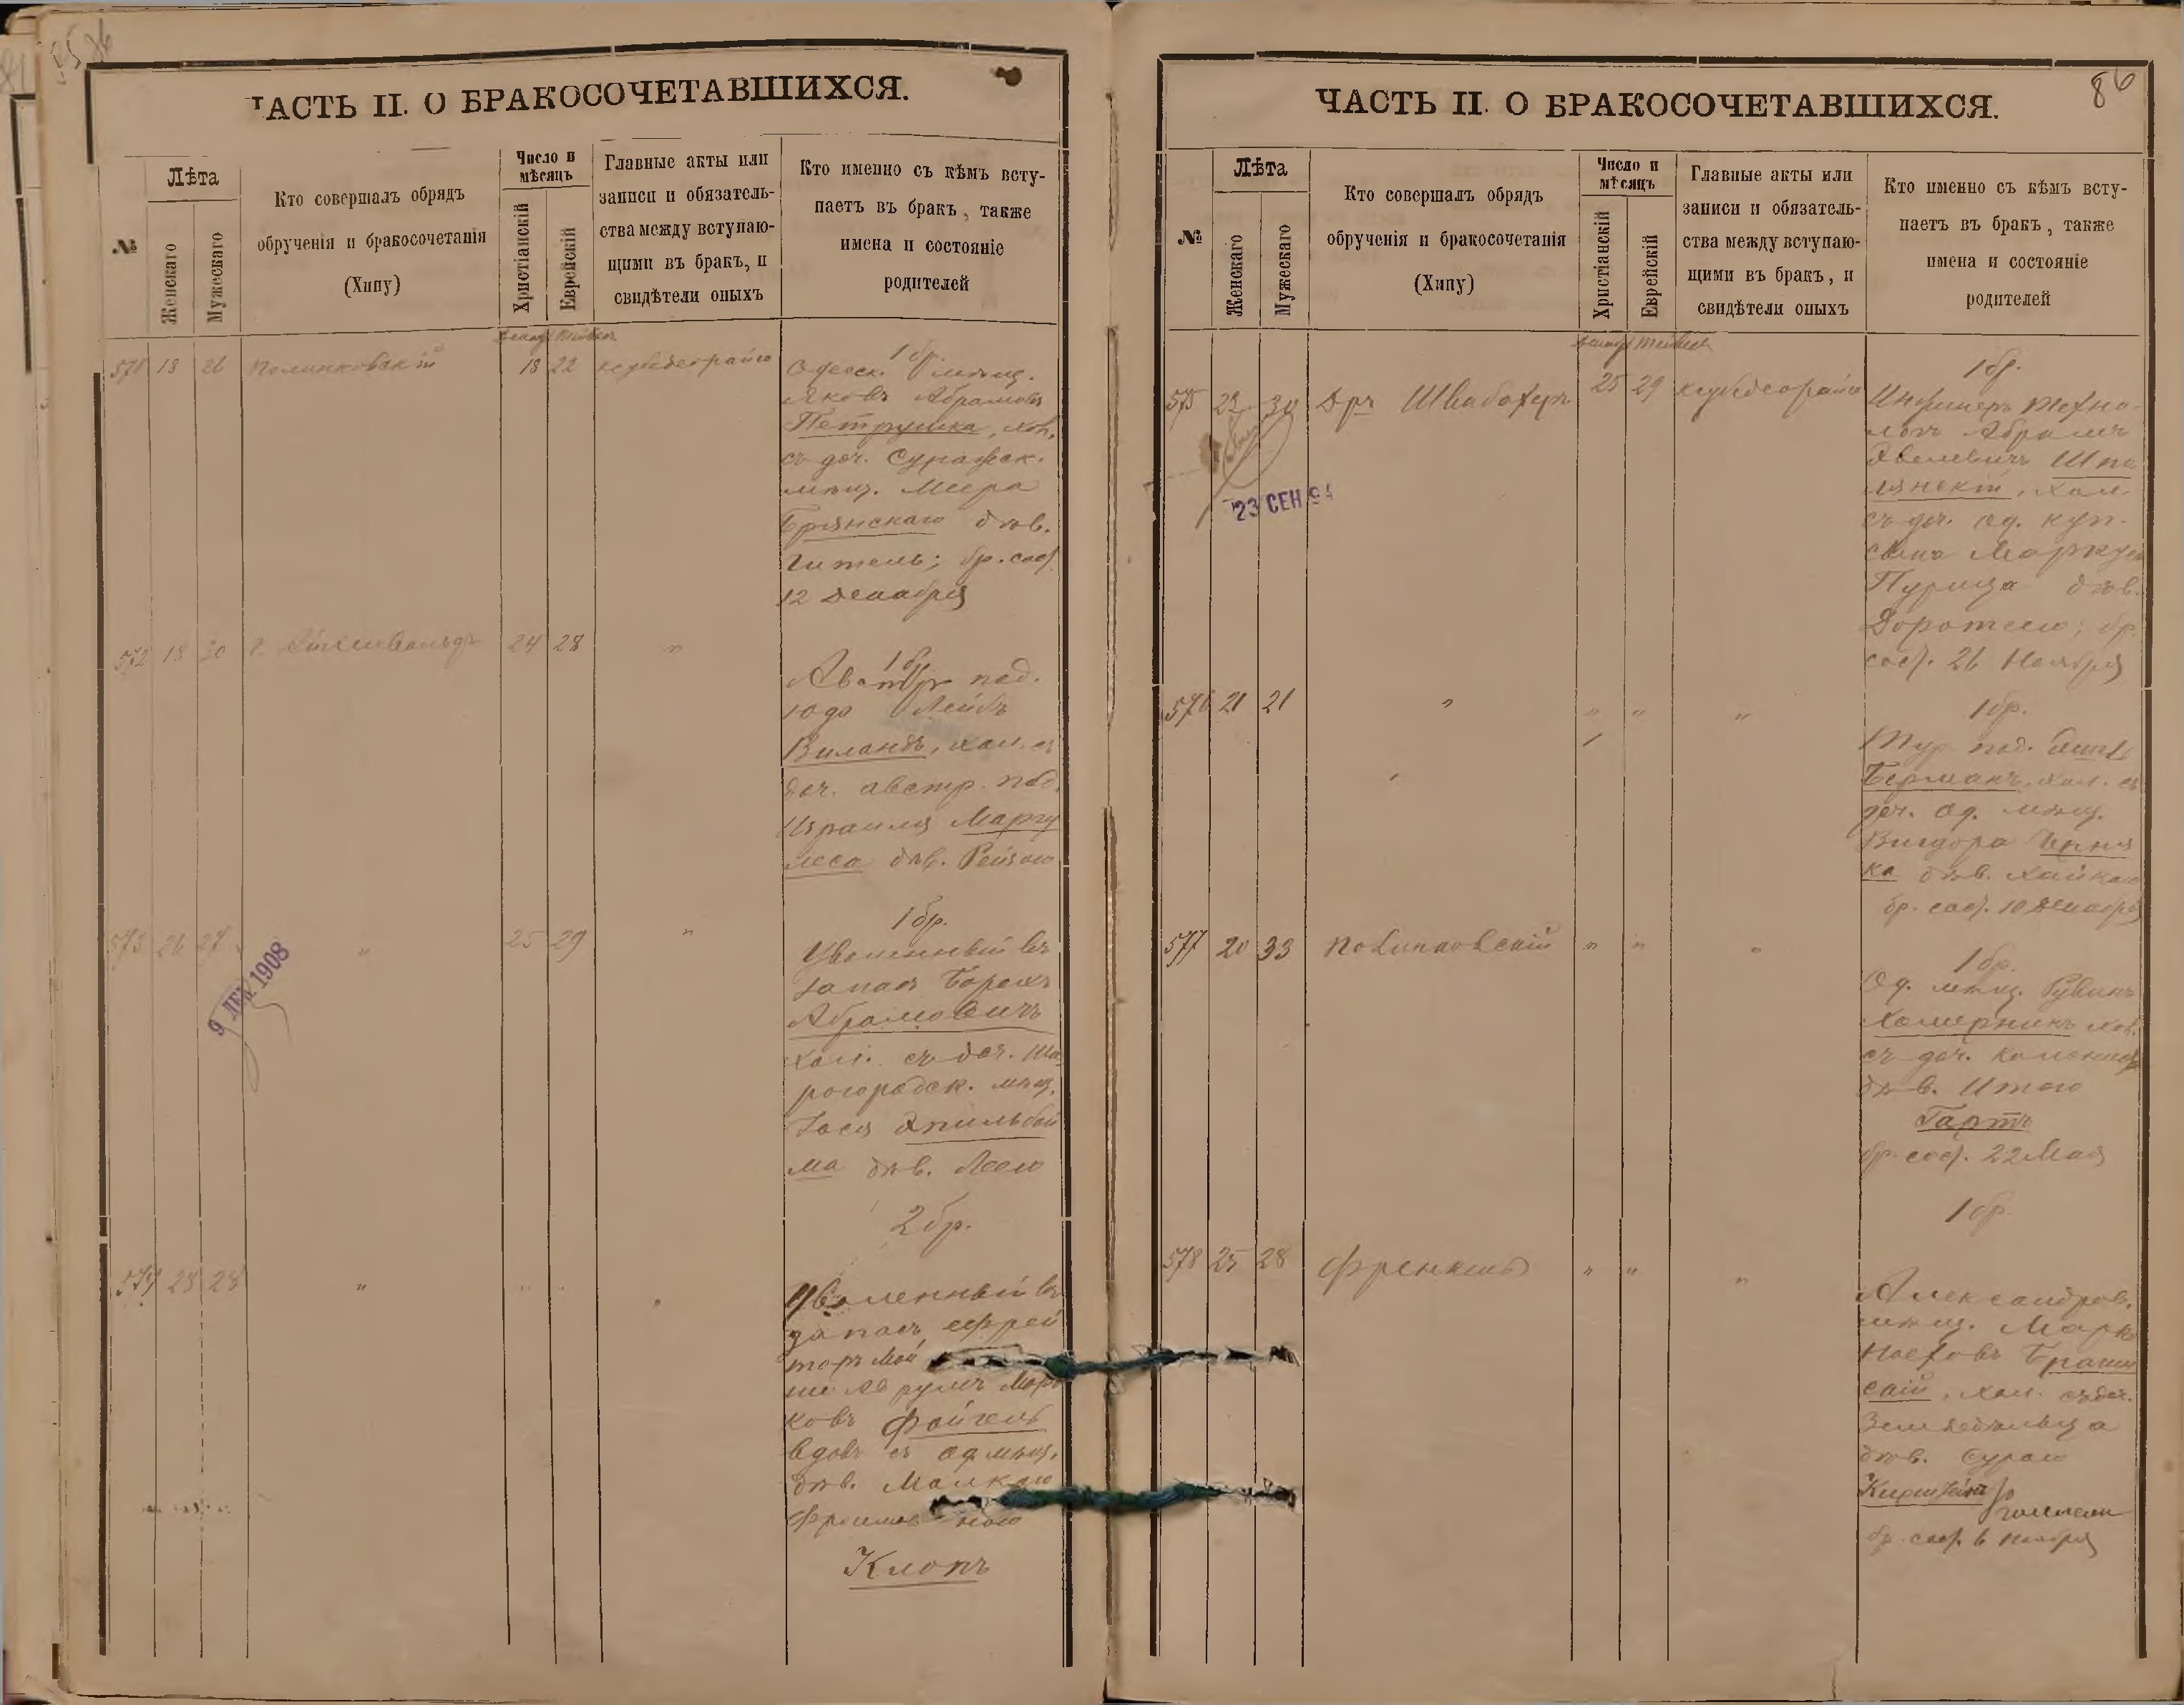 ЧАСТЬ II. О БРАКОСОЧЕТАВШИХСЯ.
№
Лѣта
Женскаго
Мужескаго
Кто совершалъ обрядъ
обрученія и бракосочетанія
(Хипу)
Число и
мѣсяцъ
Христіанскій
Еврейскій
Главные акты или
записи и обязатель-
ства между вступаю-
щими въ бракъ, и
свидѣтели оныхъ
Кто именно съ кѣмъ всту-
паетъ въ бракъ, также
имена и состояніе
родителей
571 18 26 Полинковскій 18 22
1 бр.
Одесск. мѣщ.
Яковъ Абрамовъ
Петрушка, хол.
съ доч. Суражск.
мѣщ. Меера
Брянскаго дѣв.
Гитель; бр. сост.
12 Декабря
572 18 30 24 28 "
1 бр.
Австр. под.
Юда Лейбъ
Виландъ, хол. съ
доч. австр. под.
Израиля Маргу
леса дѣв. Рейзою
573 26 27 " 25 29 "
9 ДЕК 1908
1 бр.
Уволенный въ
запасъ Борохъ
Абрамовичъ
хол. съ доч. Ша
рогородск. мѣщ.
Іося Эпильбой
ма дѣв. Леею
574 28 28 " " "
2 бр.
Уволенный въ
запасъ, ефрей
торъ Мой
ковъ Фойгель
вдов. съ од. мѣщ.
дѣв. Малкою
Клопъ
86
ЧАСТЬ II. О БРАКОСОЧЕТАВШИХСЯ.
№
Лѣта
Женскаго
Мужескаго
Кто совершалъ обрядъ
обрученія и бракосочетанія
(Хипу)
Число и
мѣсяцъ
Христіанскій
Еврейскій
Главные акты или
записи и обязатель-
ства между вступаю-
щими въ бракъ, и
свидѣтели оныхъ
Кто именно съ кѣмъ всту-
паетъ въ бракъ, также
имена и состояніе
родителей
575 22 30 Дръ Швабахеръ 25 29
23 СЕН 94
1 бр.
Инженеръ техно-
логъ Абрамъ
Шпо
лянскій, хол.
съ доч. од. куп.
сына Маркуса
Пурица дѣв.
Доротею; бр.
сост. 26 Ноября
576 21 21 " " " "
1 бр.
Тур. под.
Берманъ, хол. съ
доч. од. мѣщ.
Вигдора Черня
ка дѣв. Хайкою
бр. сост. 10 Декабря
577 20 33 Полинковскій " " "
1 бр.
Од. мѣщ. Рувинъ
хол.
съ доч. колониста
дѣв. Итою
Гартъ
бр. сост. 22 Мая
578 25 28 Френкель " " "
1 бр.
Александров.
мѣщ. Марко
Носховъ
скій, хол. съ доч.
Земледѣльца
дѣв. Сурою
бр. сост. 6 Ноября